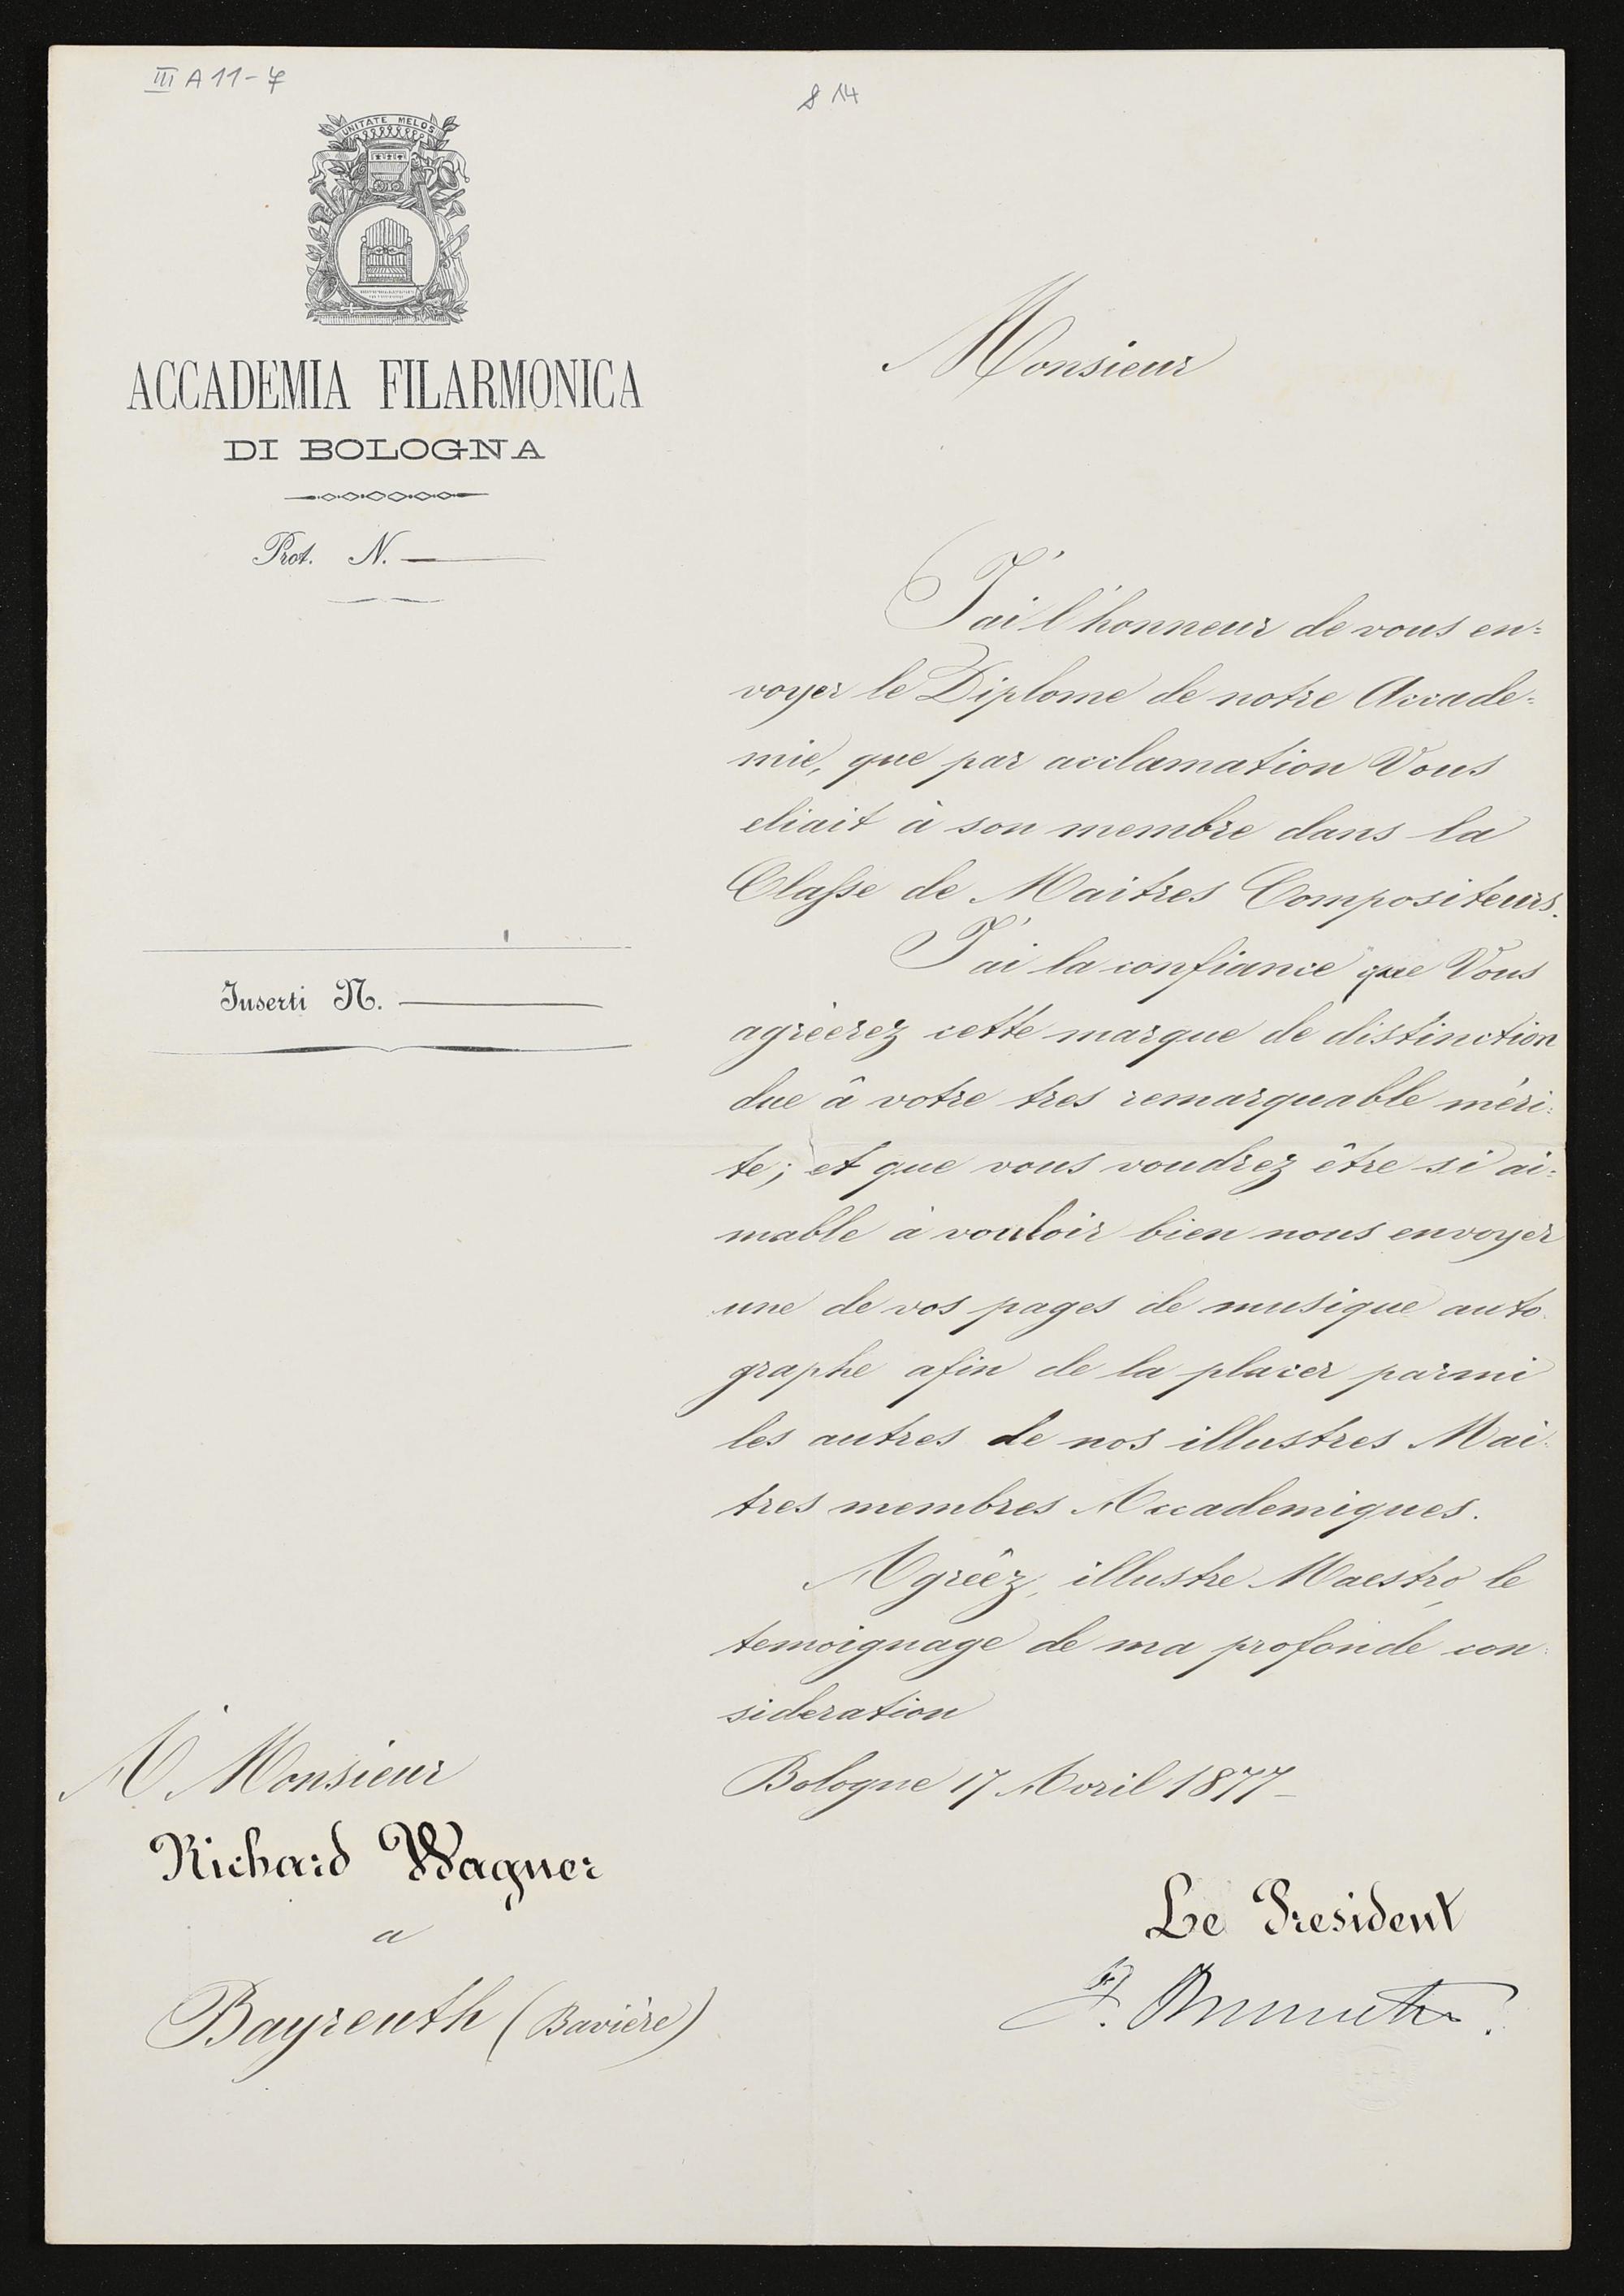 III A 11-7
814
UNITATE MELOS
ACCADEMIA FILARMONICA
DI BOLOGNA
Prot. N.
Inserti N.
Monsieur
J'ai l'honneur de vous en=
voyer le Diplome de notre Accade=
mie, que par acclamation Vous
eliait à son membre dans la
Classe de Maitres Compositeurs.
J'ai la confiance que Vous
agréerez cette marque de distinction
due â votre tres remarquable méri=
te; et que vous voudrez être si ai=
mable à vouloir bien nous envoyer
une de vos pages de musique auto=
graphe afin de la placer parmi
les autres de nos illustres Mai=
tres membres Accademiques.
Agrêez, illustre Maestro, le
temoignage de ma profonde con=
sideration
Bologne 17 Avril 1877
Le President
A Monsieur
Richard Wagner
a
Bayreuth (Bavière)